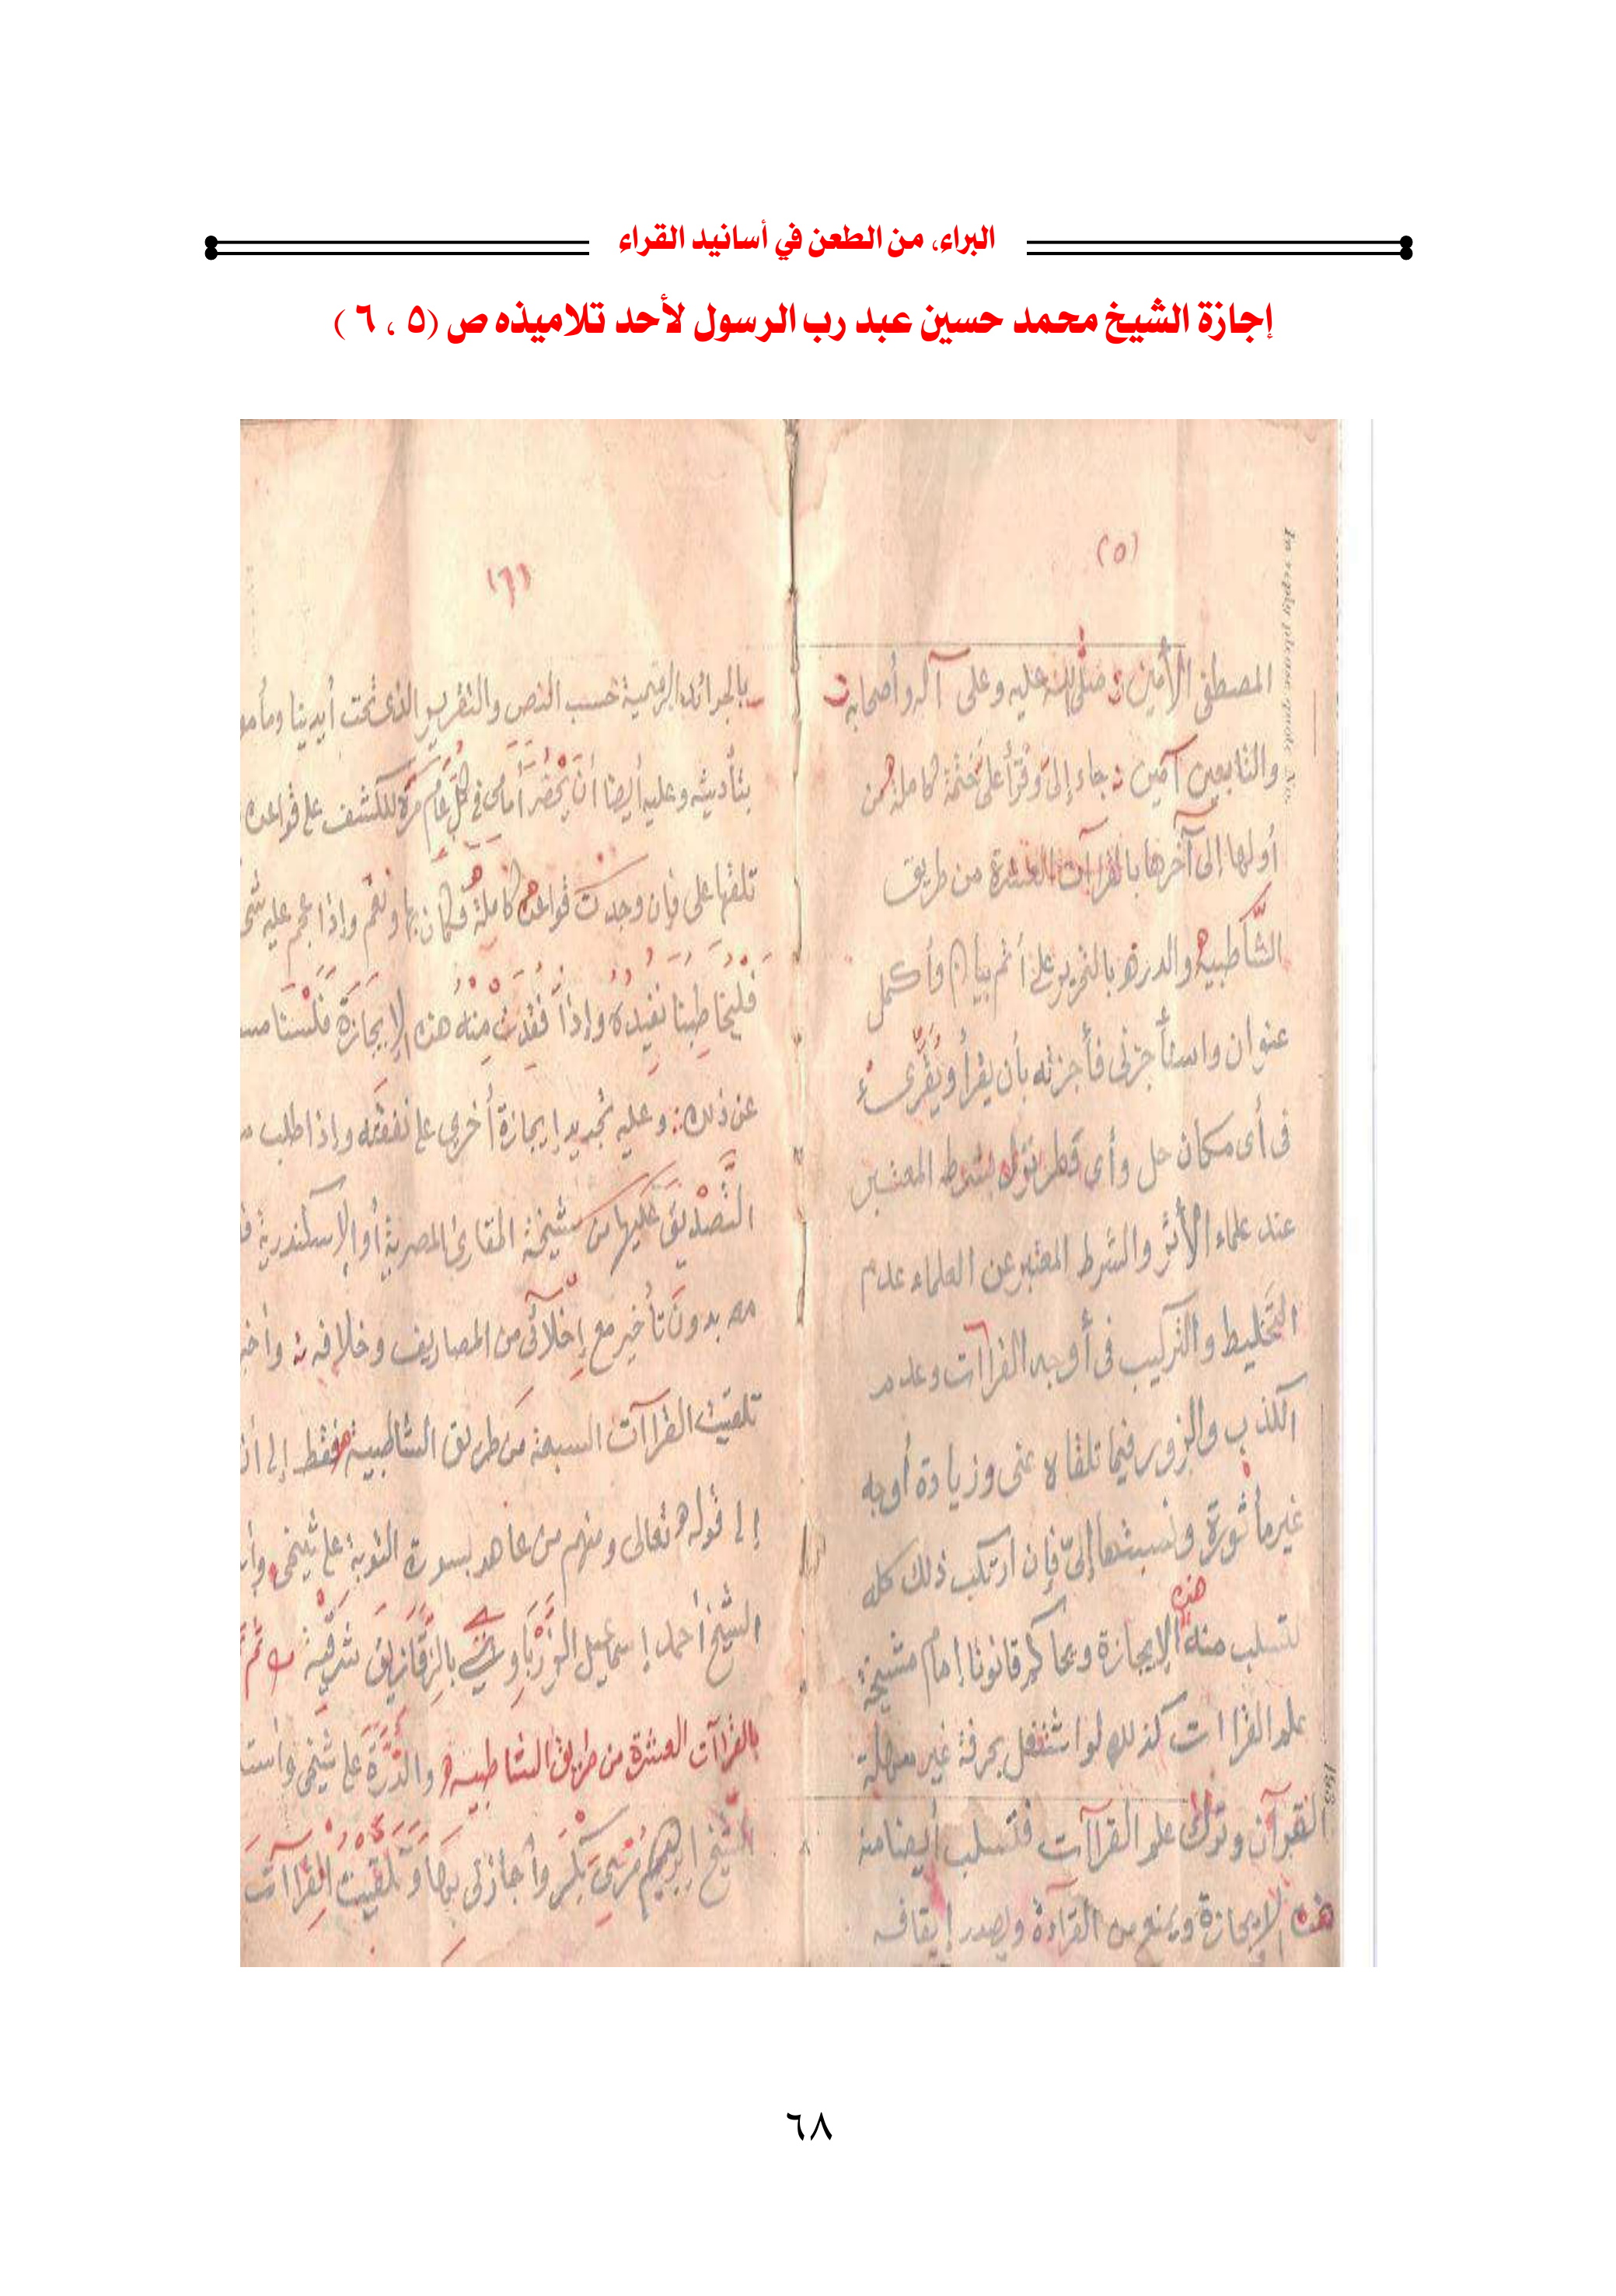 البراء، من الطعن في أسانيد القراء
إجازة الشيخ محمد حسين عبد رب الرسول لأحد تلاميذه ص (٥ ، ٦ )
(٥)
In reply please quote No.
المصطفى الأمين صلى الله عليه وعلى آله وأصحابه
والتابعين آمين جاء إلىّ وقرأ علىّ ختمة كاملة من
أولها إلى آخرها بالقرآت العشرة من طريق
الشاطبية والدرة بالتحرير على أتم بيان وأكمل
عنوان واستأجزنى فأجزته بأن يقرأ ويقرىء
فى أى مكان حل وأى قطر نزل بشرط المعتبر
عند علماء الأثر والشرط المعتبر عن العلماء عدم
التخليط والتركيب فى أوجه القراآت وعدم
الكذب والزور فيما تلقاه عنى وزيادة أوجه
غير مأثورة ونسبتها إلىّ فإن ارتكب ذلك كله
لتسلب منه هذه الإيجازة ويحاكم قانونا إمام مشيخة
علم القراات كذلك لو اشتغل بحرفة غير
القرآن وترك علم القراآت فتسلب أيضا منه
هذه الإيجازة ويمنع من القراءة ويصدر إيقافه
(٦)
بالجرائد الرسمية حسب النص والتقرير الذى تحت أيدينا
بتأديته وعليه أيضا أن يحضر أمامى فى كل عام مرة للكشف على قواعده
تلقها على فإن وجدت قواعده كاملة فكان بها ونعم وإذا عليه
فليخاطبنا نفيده وإذا فقدت منه هذه الإيجازة فلسنا
عن ذلك وعليه تجديد إيجازة أخرى على نفقته وإذا طلب
التصديق عليها من مشيخة المقارئ المصرية أو الإسكندرية
بدون تأخير مع إخلائى من المصاريف وخلافه
تلقيت القراآت السبعة من طريق الشاطبية فقط إلى
إلى قوله تعالى ومنهم من عاهد بسورة التوبة على شيخى
الشيخ أحمد إسماعيل بالزقازيق شرقية ثم
بالقراآت العشرة من طريق الشاطبية والدرة على شيخى
الشيخ إبراهيم مرسى بكر وأجازنى بها وتلقيت القراآت
٦٨